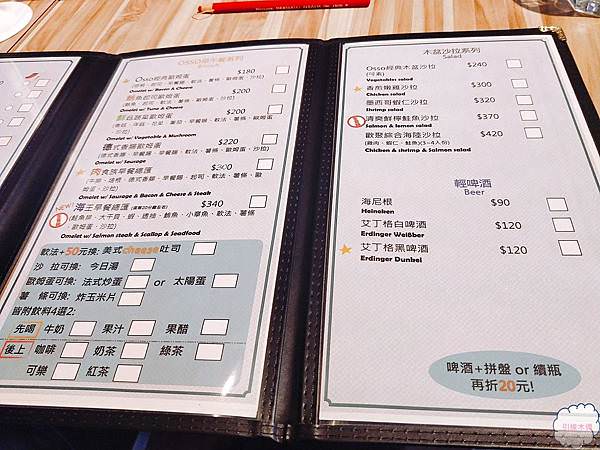 Osso早午餐系列
Brunch
Osso經典歐姆蛋 $180
Omelet w/ Bacon & Cheese
鮪魚起司歐姆蛋 $200
Omelet w/ Tuna & Cheese
鮮菇蔬菜歐姆蛋 $200
Omelet w/ Vegetable & Mushroom
德式香腸歐姆蛋 $220
Omelet w/ Sausage
肉食族早餐總匯 $300
Omelet w/ Sausage & Bacon & Cheese & Steak
海王早餐總匯 $340
Omelet w/ Salmon steak & Scallop & Seadfood
軟法+50元換: 美式cheese吐司
沙 拉可換: 今日湯
歐姆蛋可換: 法式炒蛋 or 太陽蛋
薯 條可換: 炸玉米片
皆附飲料4選2:
先喝 牛奶 果汁 果醋
後上 咖啡 奶茶 綠茶
可樂 紅茶
木盆沙拉系列
Salad
Osso經典木盆沙拉 $240
(可素)
Vegetables salad
香煎嫩雞沙拉 $300
Chicken salad
墨西哥蝦仁沙拉 $320
Shrimp salad
清爽鮮檸鮭魚沙拉 $370
Salmon & lemon salad
歡聚綜合海陸沙拉 $420
(雞肉、蝦仁、鮭魚)(3~4人份)
Chicken & shrimp & Salmon salad
輕啤酒
Beer
海尼根 $90
Heineken
艾丁格白啤酒 $120
Erdinger Weißber
艾丁格黑啤酒 $120
Erdinger Dunkel
啤酒+拼盤 or 續瓶
再折20元!